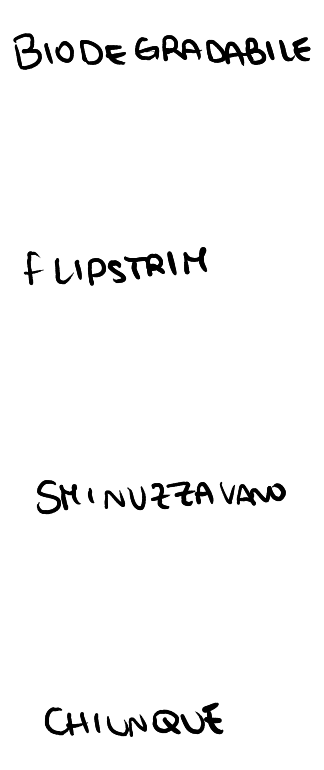 BIODEGRADABILE
fLIPSTRIM
SMINUZZAVANO
CHIUNQUE